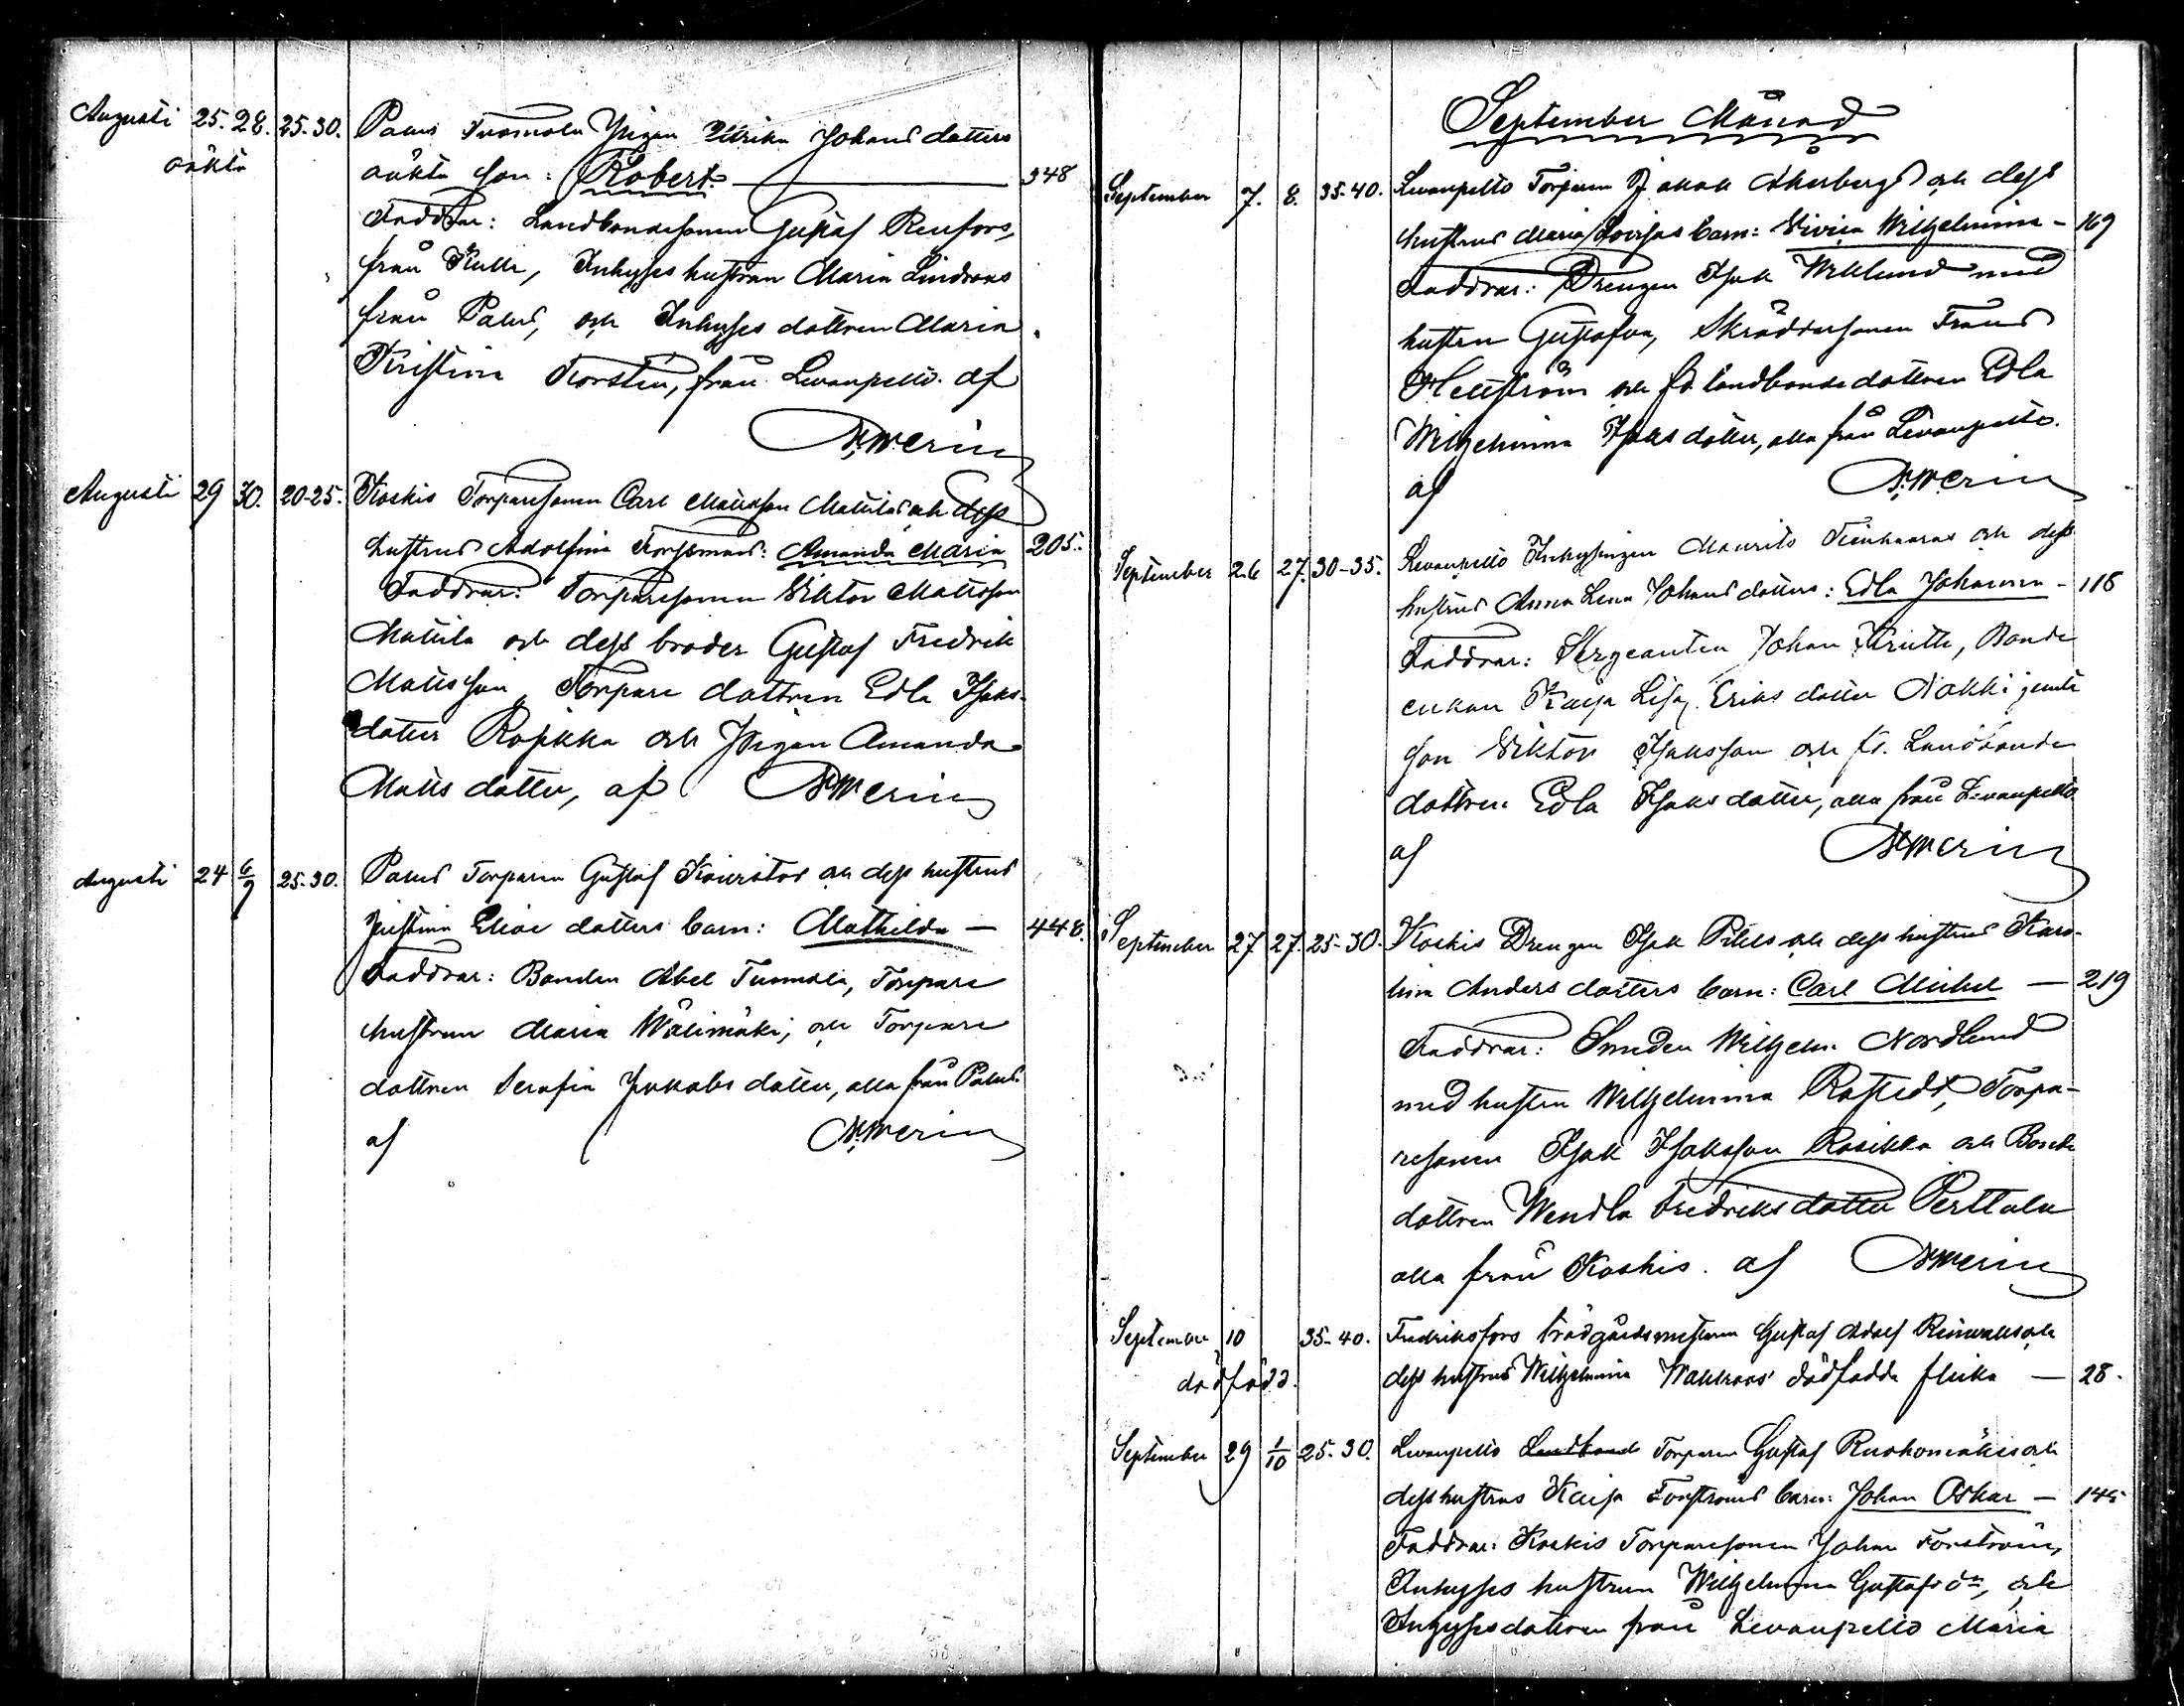 Augusti 25. 28. 25.30. Palus Tuomola Pigan Ulrika Johans dotters
oäkta oäkta son: Robert. — 348
Faddrar: Landbondesonen Gustaf Renfors,
från Kulla, Inhyses hustrun Maria Lindroos
från Palus, och Inhyses dottren Maria
Kristina Torstén, från Levanpelto. af
Amerin
Augusti 29 30. 20-25. Koskis Torparesonen Carl Mattsson Mattilas och dess
hustrus Adolfina Forssmans: Amanda Maria 205.
Faddrar: Torparesonen Viktor Mattsson
Mattila och dess broder Gustaf Fredrik
Mattsson, Torpare dottren Edla Isaks-
dotter Rosikka och Pigan Amanda
Matts dotter, af Amerin
Augusti 24 6/9 25-30. Palus Torparen Gustaf Koivistos och dess hustrus
Justina Elias dotters barn: Mathilda — 448.
Faddrar: Bonden Abel Tuomola, Torpare
hustrun Maria Välimäki, och Torpare
dottren Serafia Jakobs dotter, alla från Palus
af Amerin
September Månad
September 7. 8. 35-40. Levanpelto Torparen Jakob Åkerbergs och dess
hustrus Maria Lovisas barn: Sivia Wilhelmina — 169
Faddrar: Drengen Isak Wiklund med
hustru Gustafva, Skräddarsonen Frans
Hellström och fd. landbonde dottren Edla
Wilhelmina Isaks dotter, alla från Levanpelto.
af Amerin
September 26 27. 30-35. Levanpelto Inhysingen Maurits Tienhaaras och dess
hustrus Anna Lena Johans dotters: Edla Johanna — 116
Faddrar: Sergeanten Johan Knutte, Bonde
enkan Kaisa Lisa Eriks dotter Nokki jemte
son Viktor Isaksson och fd. Landbonde
dottren Edla Isaks dotter, alla från Levanpelto
af Amerin
September 27 27. 25-30. Koskis Drengen Isak Pihls och dess hustrus Karo-
lina Anders dotters barn: Carl Mikel — 219
Faddrar: Smeden Wilhelm Nordlund
med hustru Wilhelmina Rostedt, Torpa-
resonen Isak Isaksson Rosikka och Bonde
dottren Wendla Fredriks dotter Perttula
alla från Koskis. af Amerin
September 10 35-40. Fredriksfors trädgårdsmästaren Gustaf Adolf Rinwalls och
dödfödd. dess hustrus Wilhelmina Wahlroos' dödfödda flicka — 28.
September 29 1/10 25-30. Levanpelto Landbond Torparen Gustaf Ruohomäkis och
dess hustrus Kaisa Forströms barn: Johan Oskar — 145
Faddrar: Koskis Torparesonen Johan Forström,
Inhyses hustrun Wilhelmina Gustafs dr, och
Inhyses dottren från Levanpelto Maria